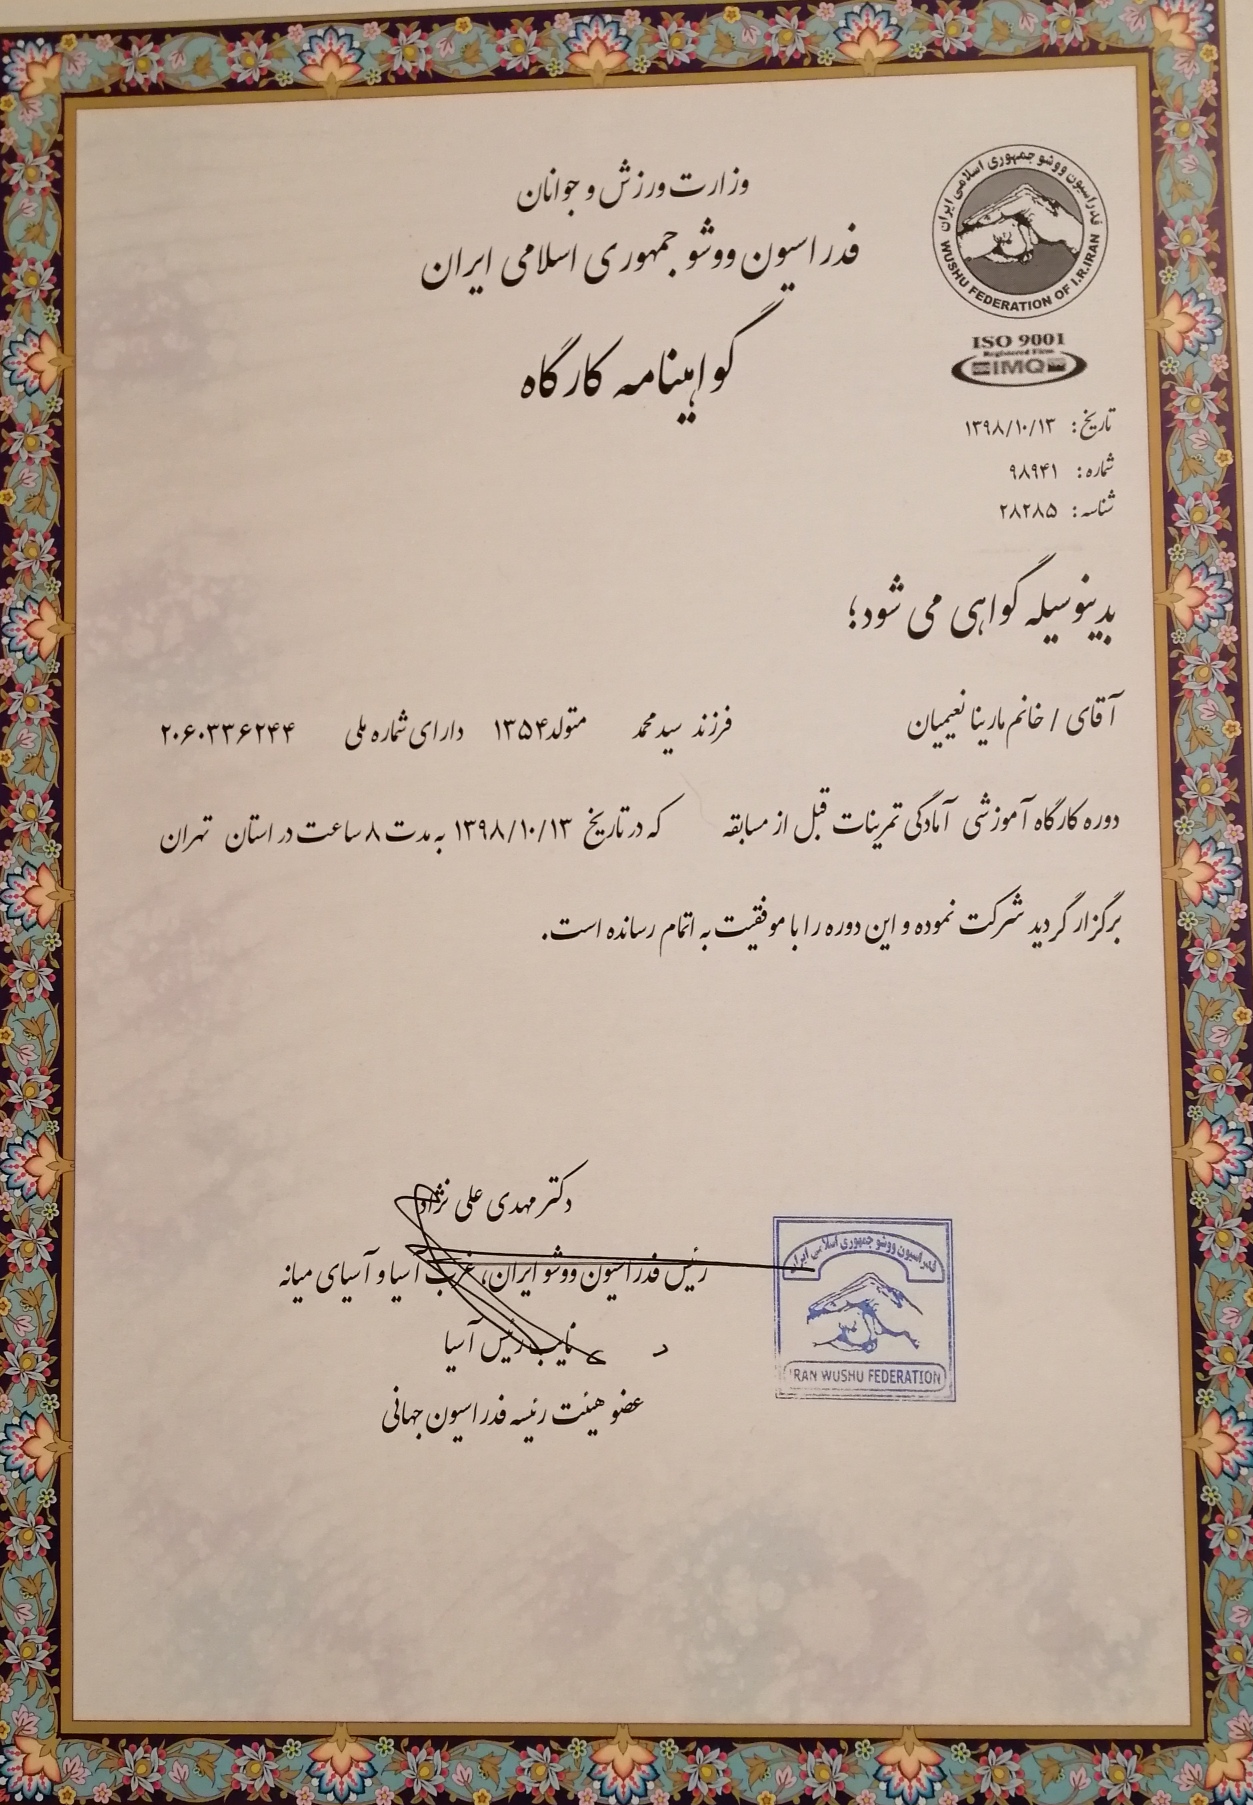 وزارت ورزش و جوانان
فدراسیون ووشو جمهوری اسلامی ایران
گواهینامه کارگاه
فدراسیون ووشو جمهوری اسلامی ایران
WUSHU FEDERATION OF I.R.IRAN
ISO 9001
Registered Firm
IMQ
تاریخ: ۱۳۹۸/۱۰/۱۳
شماره: ۹۸۹۴۱
شناسه: ۲۸۲۸۵
بدینوسیله گواهی می شود؛
آقای / خانم مارینا نعیمیان فرزند سید محمد متولد ۱۳۵۴ دارای شماره ملی ۲۰۶۰۳۳۶۲۴۴
دوره کارگاه آموزشی آمادگی تمرینات قبل از مسابقه که در تاریخ ۱۳۹۸/۱۰/۱۳ به مدت ۸ ساعت در استان تهران
برگزار گردید شرکت نموده و این دوره را با موفقیت به اتمام رسانده است.
دکتر مهدی علی نژاد
رئیس فدراسیون ووشو ایران، غرب آسیا و آسیای میانه
نایب رئیس آسیا
عضو هیئت رئیسه فدراسیون جهانی
فدراسیون ووشو جمهوری اسلامی ایران
IRAN WUSHU FEDERATION